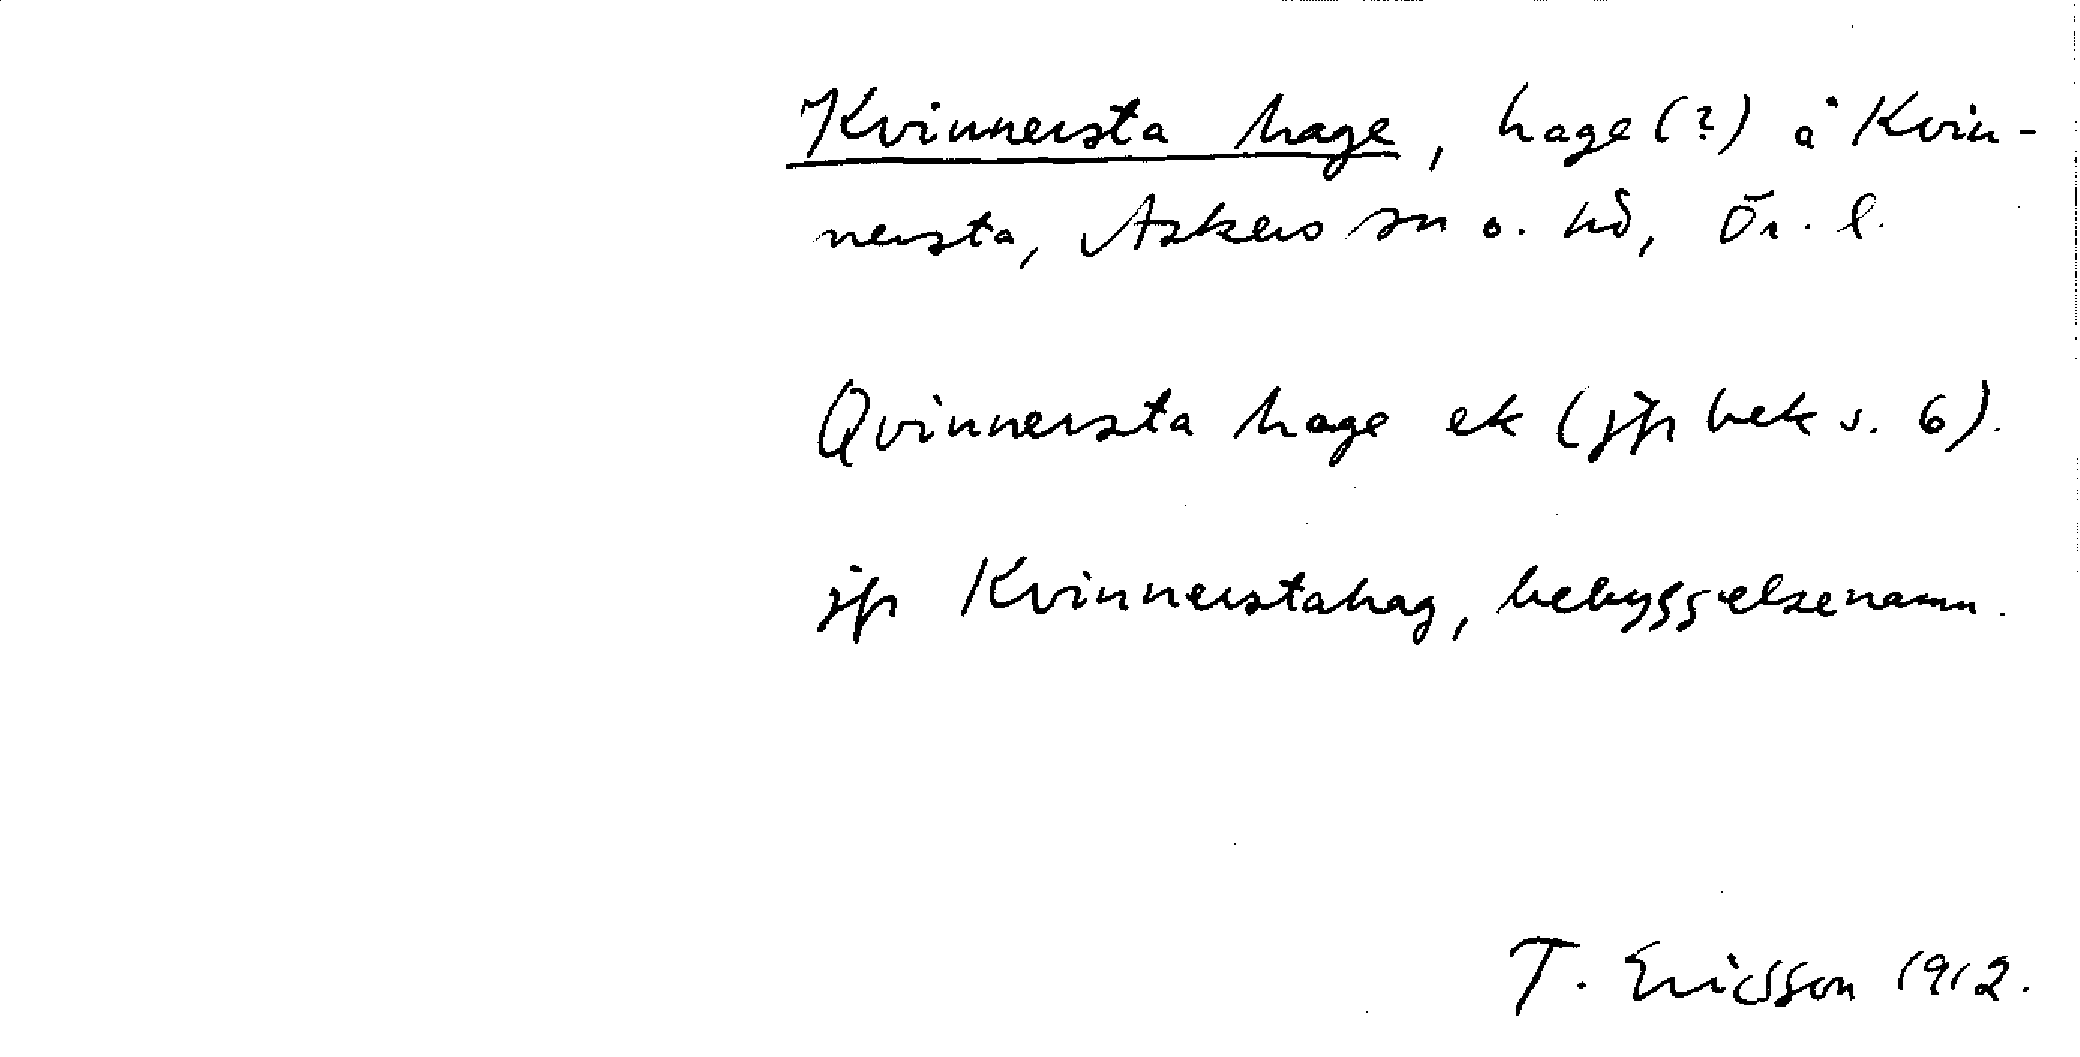 Kvinnersta hage, hage (?) å Kvin-
nersta, Askers sn o. hd, Ör. l.
Qvinnersta hage ek (jfr bek s. 6).
jfr Kvinnerstahag, bebyggelsenamn.
T. Ericsson 1912.